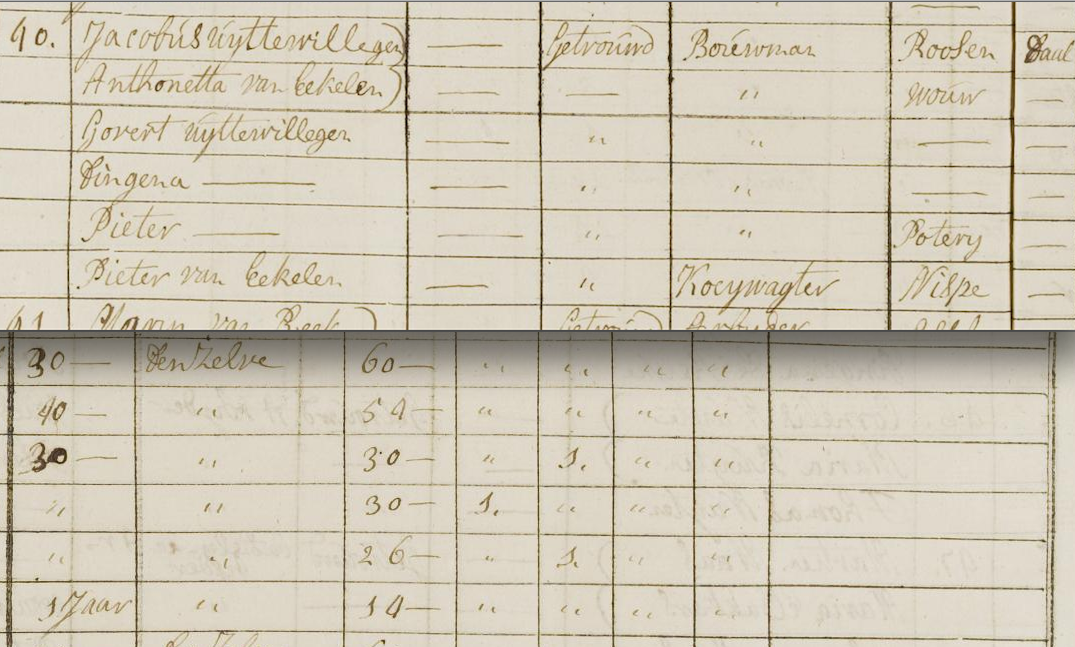 40. Jacobus uyttewillegen) — Getrouwd Bouwman Roosen
Anthonetta van Eekelen) — — " wouw —
Govert uyttewillegen — " " — —
Dingena — — " " — —
Pieter — — " " Potery —
Pieter van Eekelen — " Koeywagter Nispe —
41
30 — 60 — " " " "
40 — 54 — " " " "
30 — " 30 — " 1. " "
" " 30 — 1. " " "
" " 26 — " 1. " "
1 Jaar " 14 — " " " "